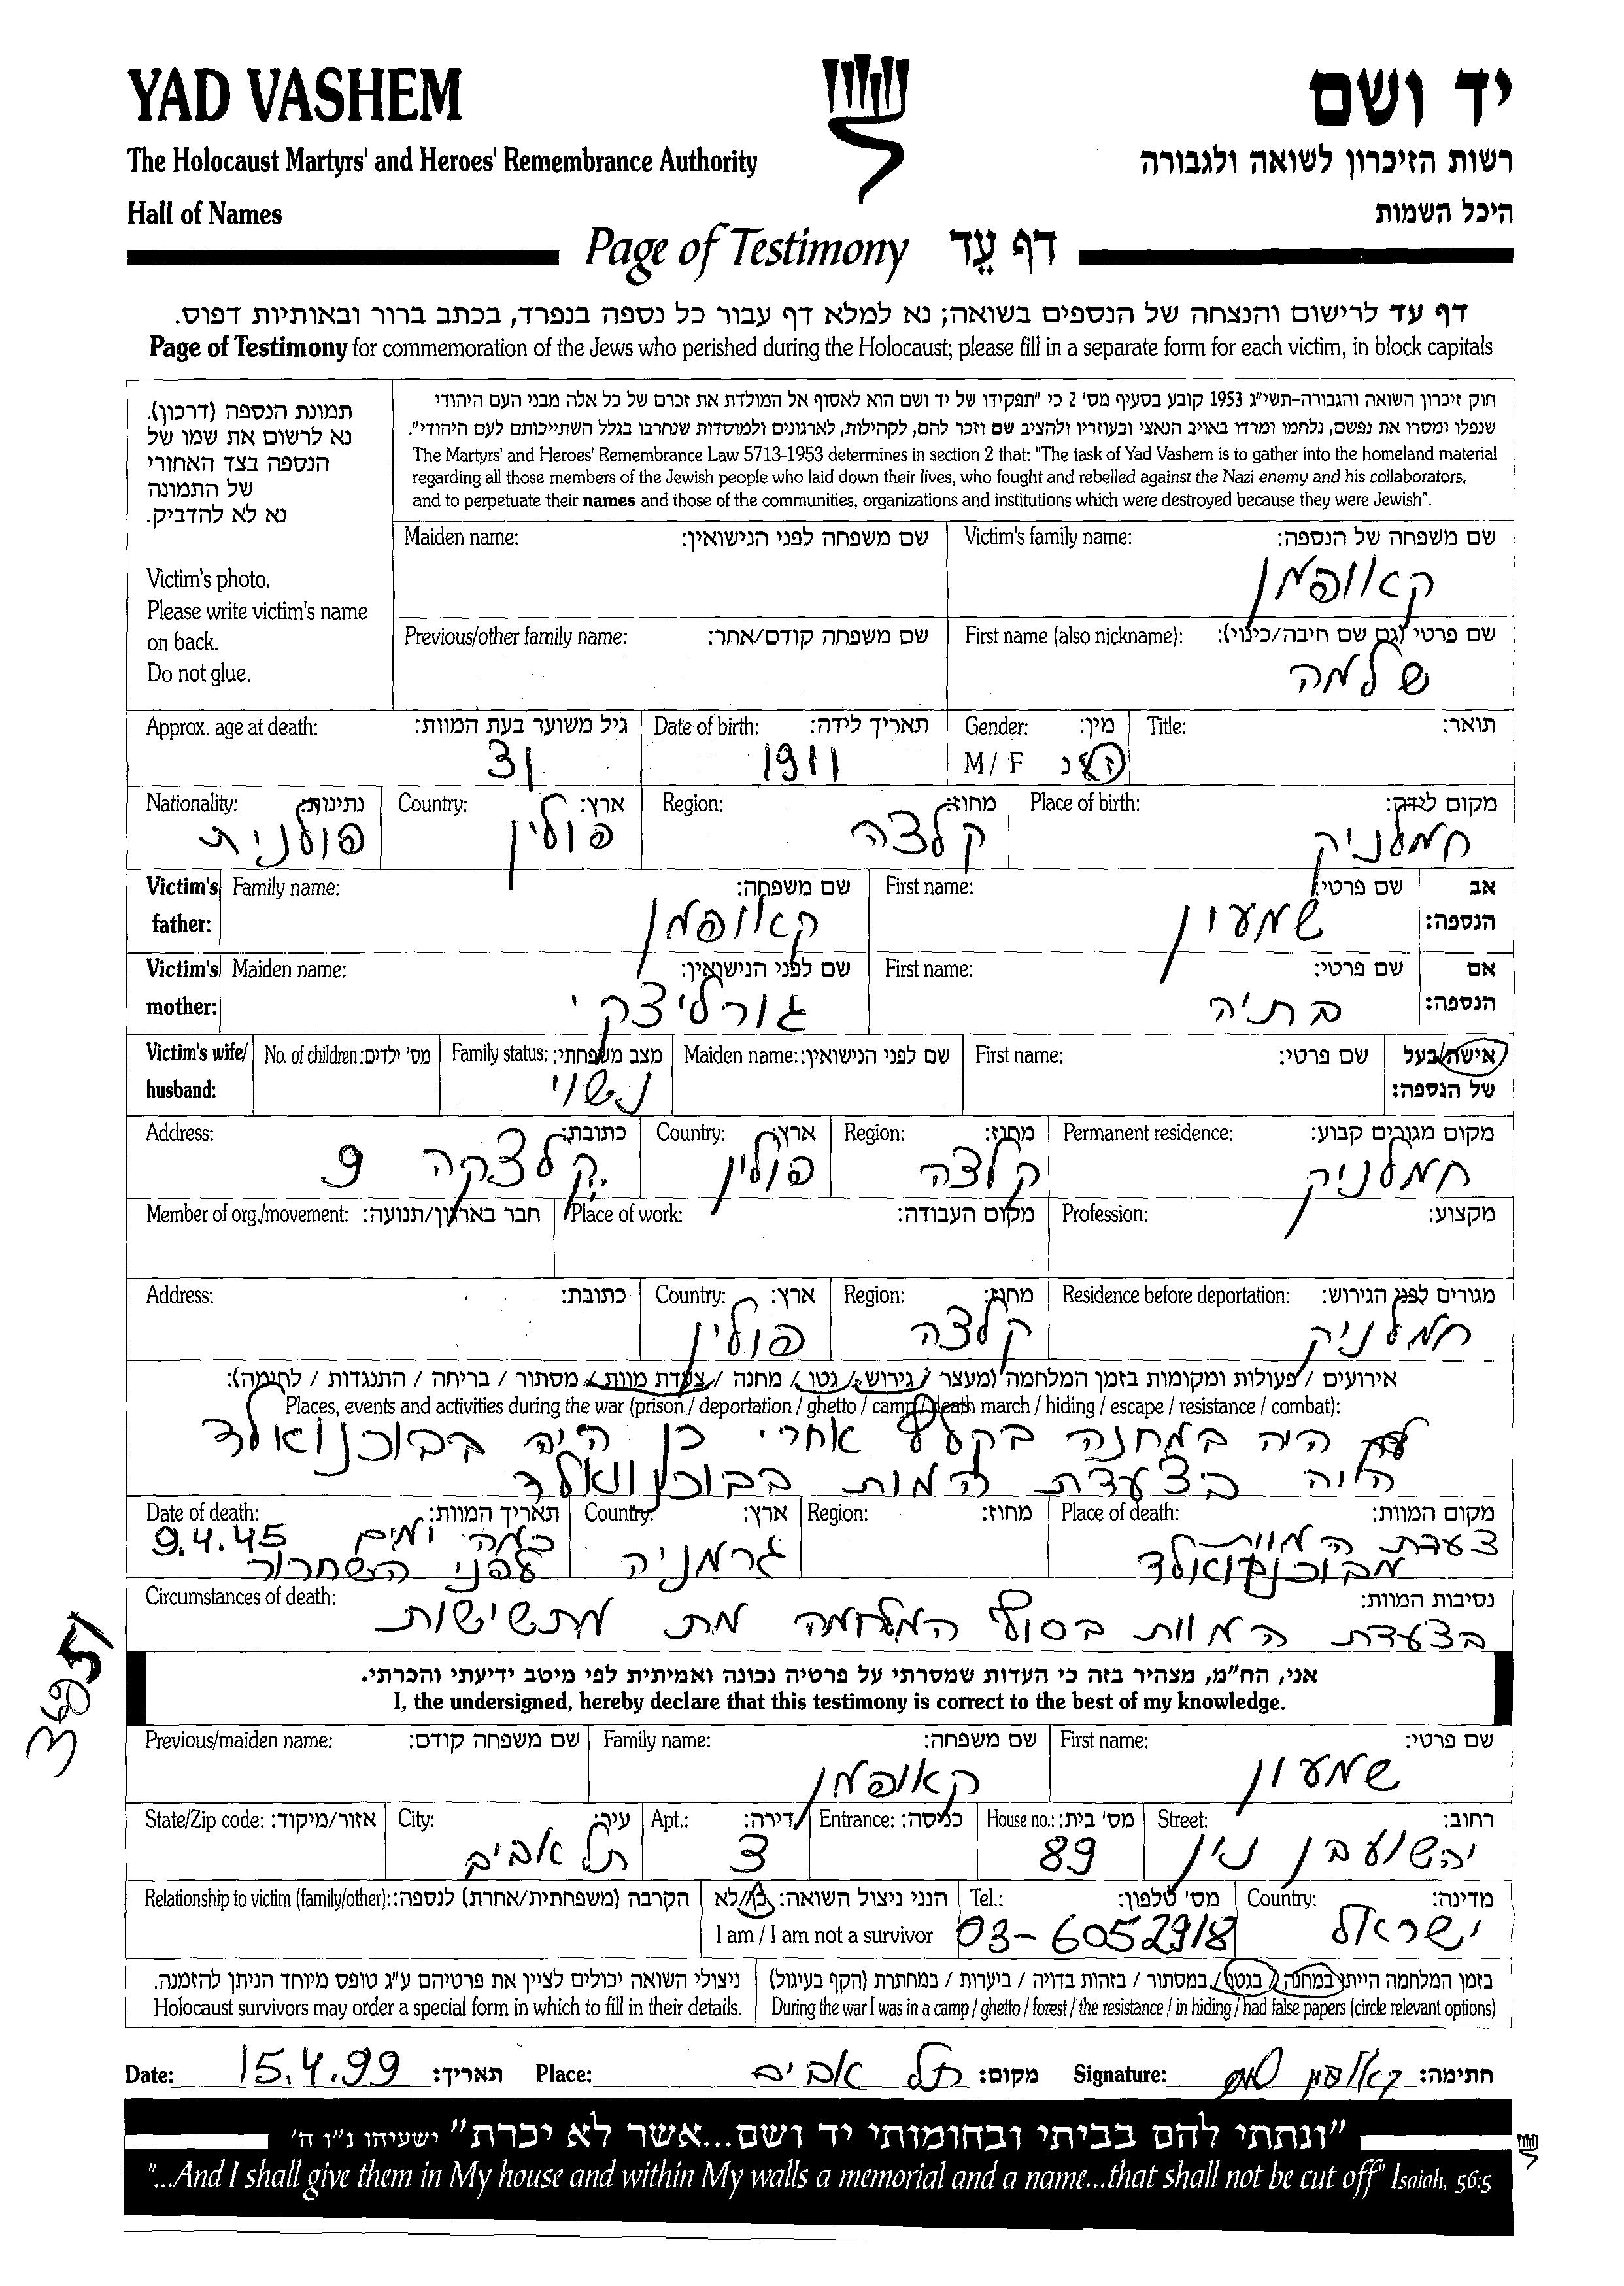 YAD VASHEM
יד ושם
The Holocaust Martyrs' and Heroes' Remembrance Authority
רשות הזיכרון לשואה ולגבורה
Hall of Names
היכל השמות
Page of Testimony דף עֵד
דף עד לרישום והנצחה של הנספים בשואה; נא למלא דף עבור כל נספה בנפרד, בכתב ברור ובאותיות דפוס.
Page of Testimony for commemoration of the Jews who perished during the Holocaust; please fill in a separate form for each victim, in block capitals
תמונת הנספה (דרכון).
נא לרשום את שמו של
הנספה בצד האחורי
של התמונה
נא לא להדביק.
Victim's photo.
Please write victim's name
on back.
Do not glue.
חוק זיכרון השואה והגבורה-תשי"ג 1953 קובע בסעיף מס' 2 כי "תפקידו של יד ושם הוא לאסוף אל המולדת את זכרם של כל אלה מבני העם היהודי
שנפלו ומסרו את נפשם, נלחמו ומרדו באויב הנאצי ובעוזריו ולהציב שם וזכר להם, לקהילות, לארגונים ולמוסדות שנחרבו בגלל השתייכותם לעם היהודי".
The Martyrs' and Heroes' Remembrance Law 5713-1953 determines in section 2 that: "The task of Yad Vashem is to gather into the homeland material
regarding all those members of the Jewish people who laid down their lives, who fought and rebelled against the Nazi enemy and his collaborators,
and to perpetuate their names and those of the communities, organizations and institutions which were destroyed because they were Jewish".
Maiden name: שם משפחה לפני הנישואין: Victim's family name: שם משפחה של הנספה:
קאופמן
Previous/other family name: שם משפחה קודם/אחר: First name (also nickname): שם פרטי (גם שם חיבה/כינוי):
שלמה
Approx. age at death: גיל משוער בעת המוות: Date of birth: תאריך לידה: Gender: מין: Title: תואר:
31 1911 M / F ז/נ
Nationality: נתינות: Country: ארץ: Region: מחוז: Place of birth: מקום לידה:
פולנית פולין קלצה חמלניק
Victim's father: Family name: שם משפחה: First name: שם פרטי: אב הנספה:
קאופמן שמעון
Victim's mother: Maiden name: שם לפני הנישואין: First name: שם פרטי: אם הנספה:
גורליצקי בתיה
Victim's wife/ husband: No. of children: מס' ילדים: Family status: מצב משפחתי: Maiden name: שם לפני הנישואין: First name: שם פרטי: אישה/בעל של הנספה:
נשוי
Address: כתובת: Country: ארץ: Region: מחוז: Permanent residence: מקום מגורים קבוע:
קלצקה 9 פולין קלצה חמלניק
Member of org./movement: חבר בארגון/תנועה: Place of work: מקום העבודה: Profession: מקצוע:
Address: כתובת: Country: ארץ: Region: מחוז: Residence before deportation: מגורים לפני הגירוש:
פולין קלצה חמלניק
אירועים / פעולות ומקומות בזמן המלחמה (מעצר / גירוש / גטו / מחנה / צעדת מוות / מסתור / בריחה / התנגדות / לחימה):
Places, events and activities during the war (prison / deportation / ghetto / camp / death march / hiding / escape / resistance / combat):
היה במחנה אחרי כן היה בבוכנואלד
היה בצעדת המות בבוכנוואלד
Date of death: תאריך המוות: Country: ארץ: Region: מחוז: Place of death: מקום המוות:
9.4.45 כמה ימים לפני השחרור גרמניה צעדת המוות מבוכנואלד
Circumstances of death: נסיבות המוות:
בצעדת המוות בסוף המלחמה מת מתשישות
אני, הח"מ, מצהיר בזה כי העדות שמסרתי על פרטיה נכונה ואמיתית לפי מיטב ידיעתי והכרתי.
I, the undersigned, hereby declare that this testimony is correct to the best of my knowledge.
Previous/maiden name: שם משפחה קודם: Family name: שם משפחה: First name: שם פרטי:
קאופמן שמעון
State/Zip code: אזור/מיקוד: City: עיר: Apt.: דירה: Entrance: כניסה: House no.: מס' בית: Street: רחוב:
תל אביב 3 89 יהושע בן נון
Relationship to victim (family/other): הקרבה (משפחתית/אחרת) לנספה: הנני ניצול השואה: כן/לא Tel.: מס' טלפון: Country: מדינה:
I am / I am not a survivor 03-6052918 ישראל
ניצולי השואה יכולים לציין את פרטיהם ע"ג טופס מיוחד הניתן להזמנה.
Holocaust survivors may order a special form in which to fill in their details.
בזמן המלחמה הייתי במחנה / בגטו / במסתור / בזהות בדויה / ביערות / במחתרת (הקף בעיגול)
During the war I was in a camp / ghetto / forest / the resistance / in hiding / had false papers (circle relevant options)
Date: 15.4.99 תאריך: Place: תל אביב מקום: Signature: חתימה:
"ונתתי להם בביתי ובחומותי יד ושם...אשר לא יכרת" ישעיהו נ"ו ה'
"...And I shall give them in My house and within My walls a memorial and a name...that shall not be cut off" Isaiah, 56:5